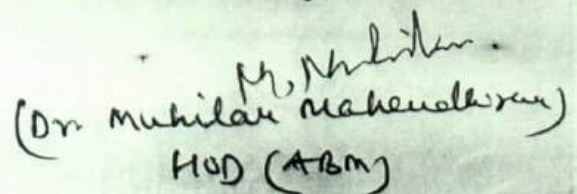 M. Muhilan.
(Dr. Muhilan Mahendhiran)
HOD (ABM)